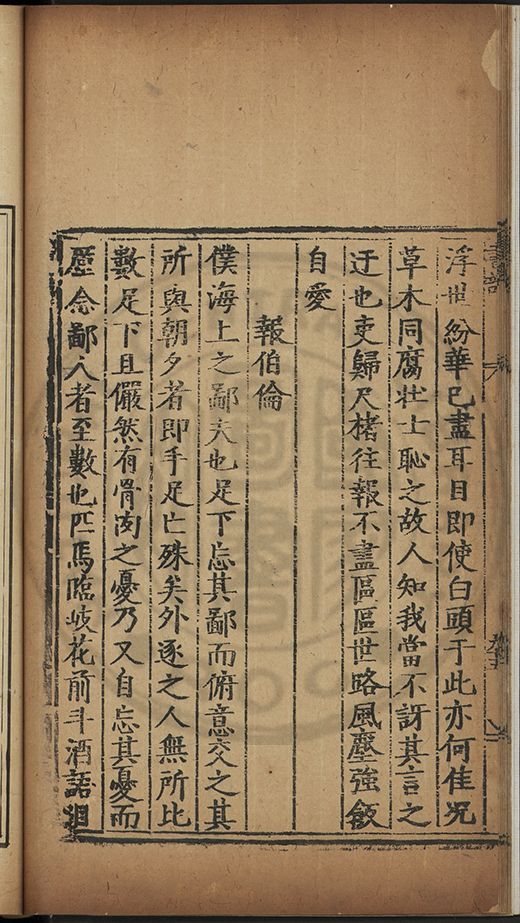 浮世紛華已盡耳目即使白頭于此亦何佳况
草木同腐壯士恥之故人知我當不訝其言之
迂也吏歸尺楮往報不盡區區世路風塵強飯
自愛
報伯倫
僕海上之鄙夫也足下忘其鄙而俯意交之其
所與朝夕者即手足亡殊矣外逐之人無所比
數足下且儼然有骨肉之憂乃又自忘其憂而
歷念鄙人者至數也匹馬臨岐花前斗酒語泪